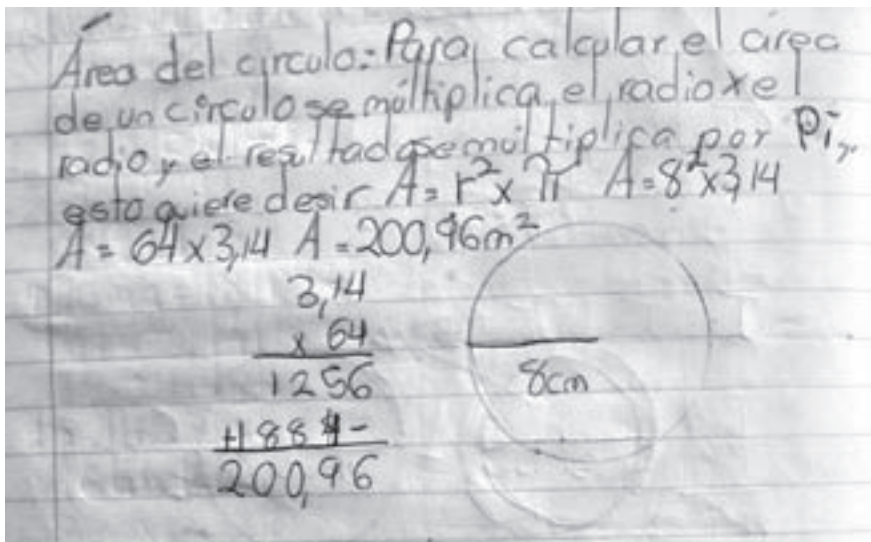 Área del circulo: Para calcular el area
de un circulo se multiplica el radio x el
radio y el resultado se multiplica por Pi,
esto quiere desir A = r² x π A = 8² x 3,14
A = 64 x 3,14 A = 200,96m²
3,14
x 64
1256
+1884-
200,96
8cm